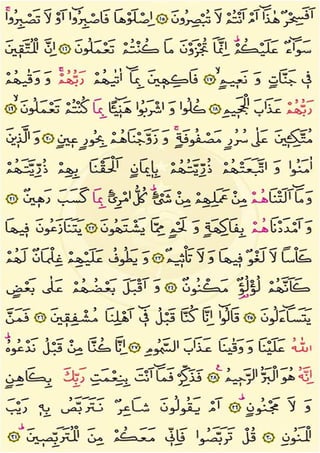 أَفَسِحْرٌ هٰذَا أَمْ أَنْتُمْ لَا تُبْصِرُونَ ﴿١٥﴾ اِصْلَوْهَا فَاصْبِرُوا أَوْ لَا تَصْبِرُوا
سَوَاءٌ عَلَيْكُمْ إِنَّمَا تُجْزَوْنَ مَا كُنْتُمْ تَعْمَلُونَ ﴿١٦﴾ إِنَّ الْمُتَّقِينَ
فِي جَنَّاتٍ وَ نَعِيمٍ ﴿١٧﴾ فَاكِهِينَ بِمَا آتٰيهُمْ رَبُّهُمْ وَ وَقٰيهُمْ
رَبُّهُمْ عَذَابَ الْجَحِيمِ ﴿١٨﴾ كُلُوا وَ اشْرَبُوا هَنِيئًا بِمَا كُنْتُمْ تَعْمَلُونَ ﴿١٩﴾
مُتَّكِئِينَ عَلٰى سُرُرٍ مَصْفُوفَةٍ وَ زَوَّجْنَاهُمْ بِحُورٍ عِينٍ ﴿٢٠﴾ وَ الَّذِينَ
اٰمَنُوا وَ اتَّبَعَتْهُمْ ذُرِّيَّتُهُمْ بِإِيمَانٍ أَلْحَقْنَا بِهِمْ ذُرِّيَّتَهُمْ
وَ مَا أَلَتْنَاهُمْ مِنْ عَمَلِهِمْ مِنْ شَيْءٍ كُلُّ امْرِئٍ بِمَا كَسَبَ رَهِينٌ ﴿٢١﴾
وَ أَمْدَدْنَاهُمْ بِفَاكِهَةٍ وَ لَحْمٍ مِمَّا يَشْتَهُونَ ﴿٢٢﴾ يَتَنَازَعُونَ فِيهَا
كَأْسًا لَا لَغْوٌ فِيهَا وَ لَا تَأْثِيمٌ ﴿٢٣﴾ وَ يَطُوفُ عَلَيْهِمْ غِلْمَانٌ لَهُمْ
كَأَنَّهُمْ لُؤْلُؤٌ مَكْنُونٌ ﴿٢٤﴾ وَ أَقْبَلَ بَعْضُهُمْ عَلٰى بَعْضٍ
يَتَسَاءَلُونَ ﴿٢٥﴾ قَالُوا إِنَّا كُنَّا قَبْلُ فِي أَهْلِنَا مُشْفِقِينَ ﴿٢٦﴾ فَمَنَّ
اللّٰهُ عَلَيْنَا وَ وَقٰينَا عَذَابَ السَّمُومِ ﴿٢٧﴾ إِنَّا كُنَّا مِنْ قَبْلُ نَدْعُوهُ
إِنَّهُ هُوَ الْبَرُّ الرَّحِيمُ ﴿٢٨﴾ فَذَكِّرْ فَمَا أَنْتَ بِنِعْمَتِ رَبِّكَ بِكَاهِنٍ
وَ لَا مَجْنُونٍ ﴿٢٩﴾ أَمْ يَقُولُونَ شَاعِرٌ نَتَرَبَّصُ بِهِ رَيْبَ
الْمَنُونِ ﴿٣٠﴾ قُلْ تَرَبَّصُوا فَإِنِّي مَعَكُمْ مِنَ الْمُتَرَبِّصِينَ ﴿٣١﴾